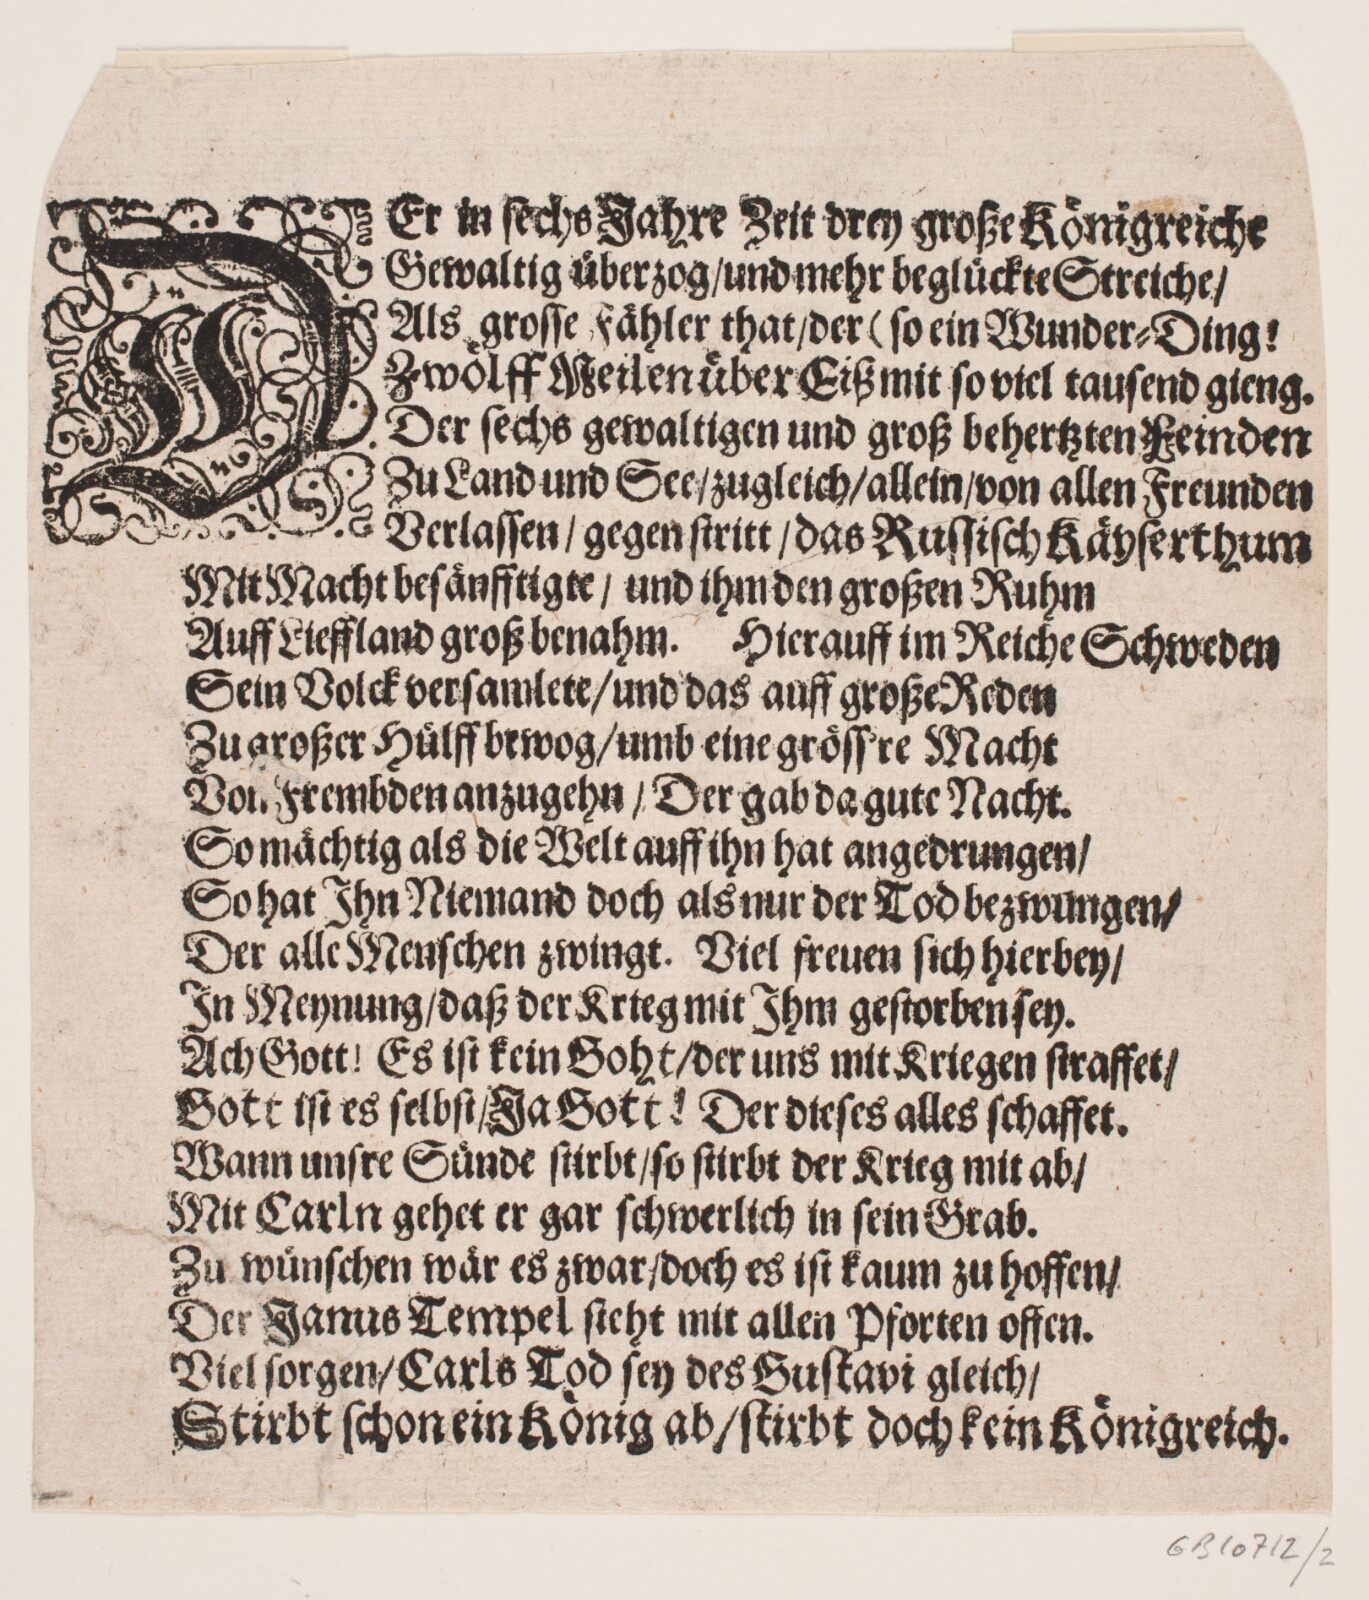 DEr in sechs Jahre Zeit drey große Königreiche
Gewaltig überzog/und mehr beglückte Streiche/
Als grosse Fähler that/der (so ein Wunder-Ding!
Zwölff Meilen über Eiß mit so viel tausend gieng.
Der sechs gewaltigen und groß behertzten Feinden
Zu Land und See/zugleich/allein/von allen Freunden
Verlassen/gegen stritt/das Russisch Käyserthum
Mit Macht besänfftigte/und ihm den großen Ruhm
Auff Lieffland groß benahm. Hierauff im Reiche Schweden
Sein Volck versamlete/und das auff große Reden
Zu großer Hülff bewog/umb eine gröss're Macht
Von Frembden anzugehn/Der gab da gute Nacht.
So mächtig als die Welt auff ihn hat angedrungen/
So hat Ihn Niemand doch als nur der Tod bezwungen/
Der alle Menschen zwingt. Viel freuen sich hierbey/
In Meynung/daß der Krieg mit Ihm gestorben sey.
Ach Gott! Es ist kein Goht/der uns mit Kriegen straffet/
Gott ist es selbst/Ja Gott! Der dieses alles schaffet.
Wann unsre Sünde stirbt/so stirbt der Krieg mit ab/
Mit Carln gehet er gar schwerlich in sein Grab.
Zu wünschen wär es zwar/doch es ist kaum zu hoffen/
Der Janus Tempel steht mit allen Pforten offen.
Viel sorgen/Carls Tod sey des Gustavi gleich/
Stirbt schon ein König ab/stirbt doch kein Königreich.
GB10712/2